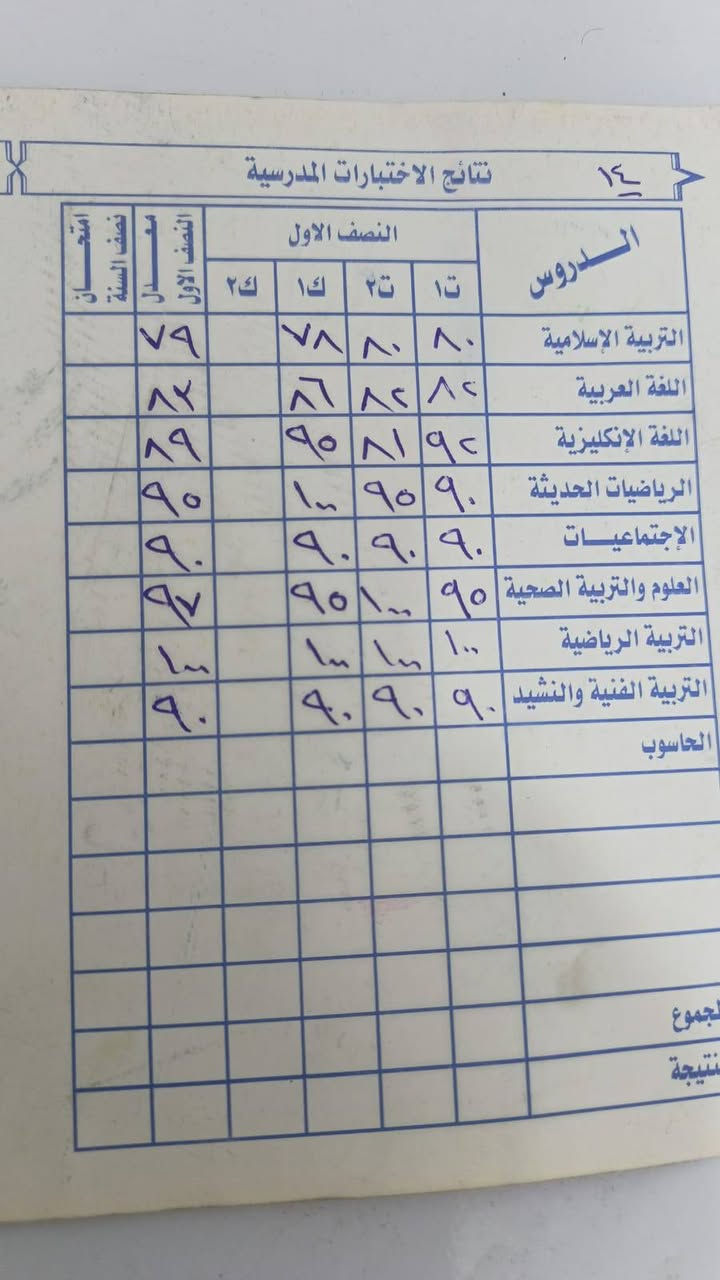 نتائج الاختبارات المدرسية ١٤
الدروس النصف الاول معدل النصف الاول امتحان نصف السنة
ت١ ت٢ ك١ ك٢
التربية الإسلامية ٨٠ ٨٠ ٧٨ ٧٩
اللغة العربية ٨٢ ٨٢ ٨٦ ٨٣
اللغة الإنكليزية ٩٢ ٨١ ٩٥ ٨٩
الرياضيات الحديثة ٩٠ ٩٥ ١٠٠ ٩٥
الإجتماعيات ٩٠ ٩٠ ٩٠ ٩٠
العلوم والتربية الصحية ٩٥ ١٠٠ ٩٥ ٩٧
التربية الرياضية ١٠٠ ١٠٠ ١٠٠ ١٠٠
التربية الفنية والنشيد ٩٠ ٩٠ ٩٠ ٩٠
الحاسوب
لجموع
نتيجة